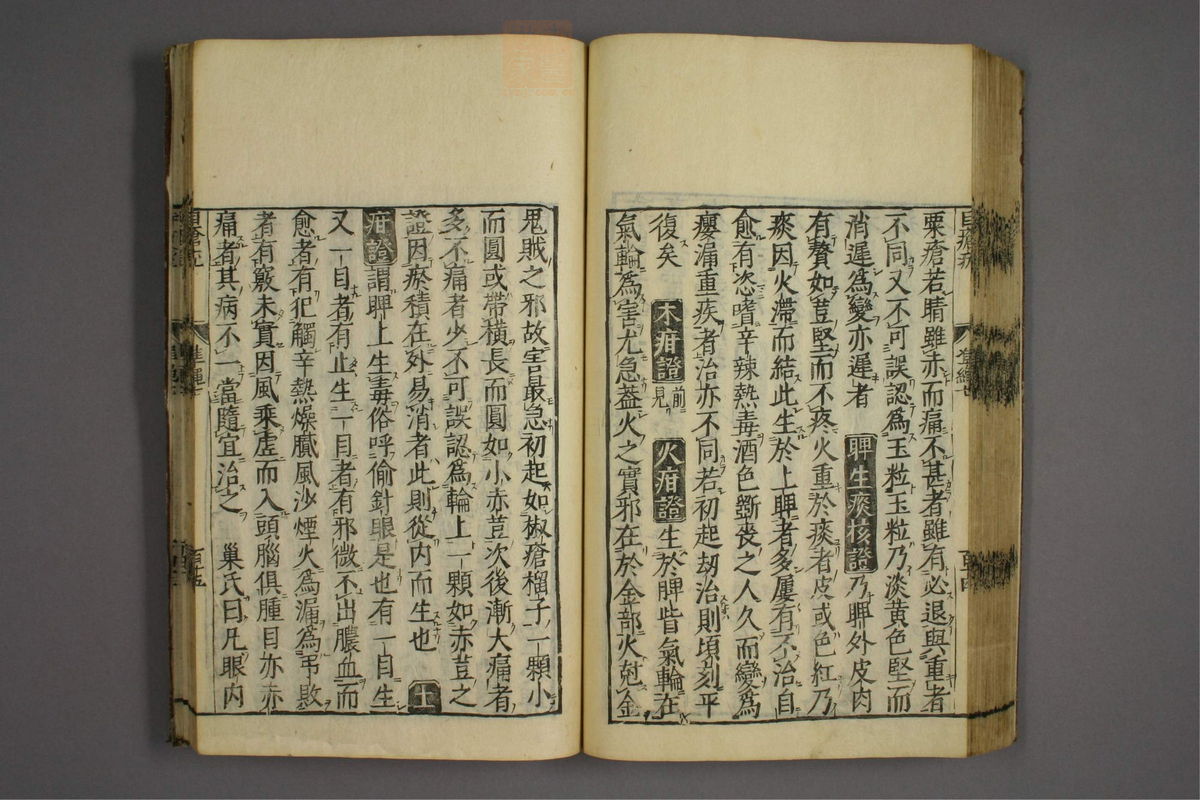 粟瘡若睛雖赤而痛不甚者雖有必退與重者
不同又不可誤認爲玉粒玉粒乃淡黃色堅而
消遲爲變亦遲者 脾生痰核證乃脾外皮肉
有贅如荳堅而不疼火重於痰者皮或色紅乃
痰因火滯而結此生於上脾者多屢有不治自
愈有恣嗜辛辣熱毒酒色斵喪之人久而變爲
癭漏重疾者治亦不同若初起刼治則頃刻平
復矣 木疳證見前 火疳證生於脾眥氣輪在
氣輪爲害尤急葢火之實邪在於金部火尅金
鬼賊之邪故害最急初起如椒瘡榴子一顆小
而圓或帶橫長而圓如小赤荳次後漸大痛者
多不痛者少不可誤認爲輪上一顆如赤荳之
證因瘀積在外易消者此則從内而生也 土
疳證謂脾上生毒俗呼偷針眼是也有一目生
又一目者有止生一目者有邪微不出膿血而
愈者有犯觸辛熱燥膩風沙煙火爲漏爲吊敗
者有竅未實因風乘虛而入頭腦俱腫目亦赤
痛者其病不一當隨宜治之 巢氏曰凡眼内